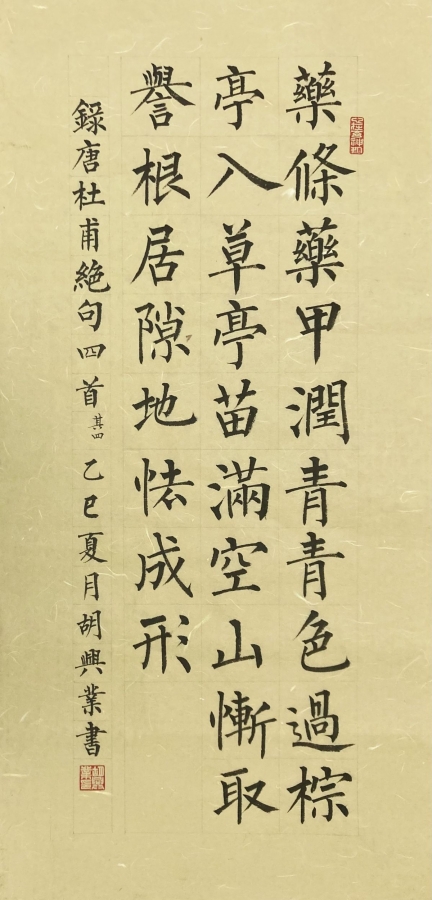 藥條藥甲潤青青色過棕
亭入草亭苗滿空山慚取
譽根居隙地怯成形
錄唐杜甫絕句四首其四 乙巳夏月胡興業書